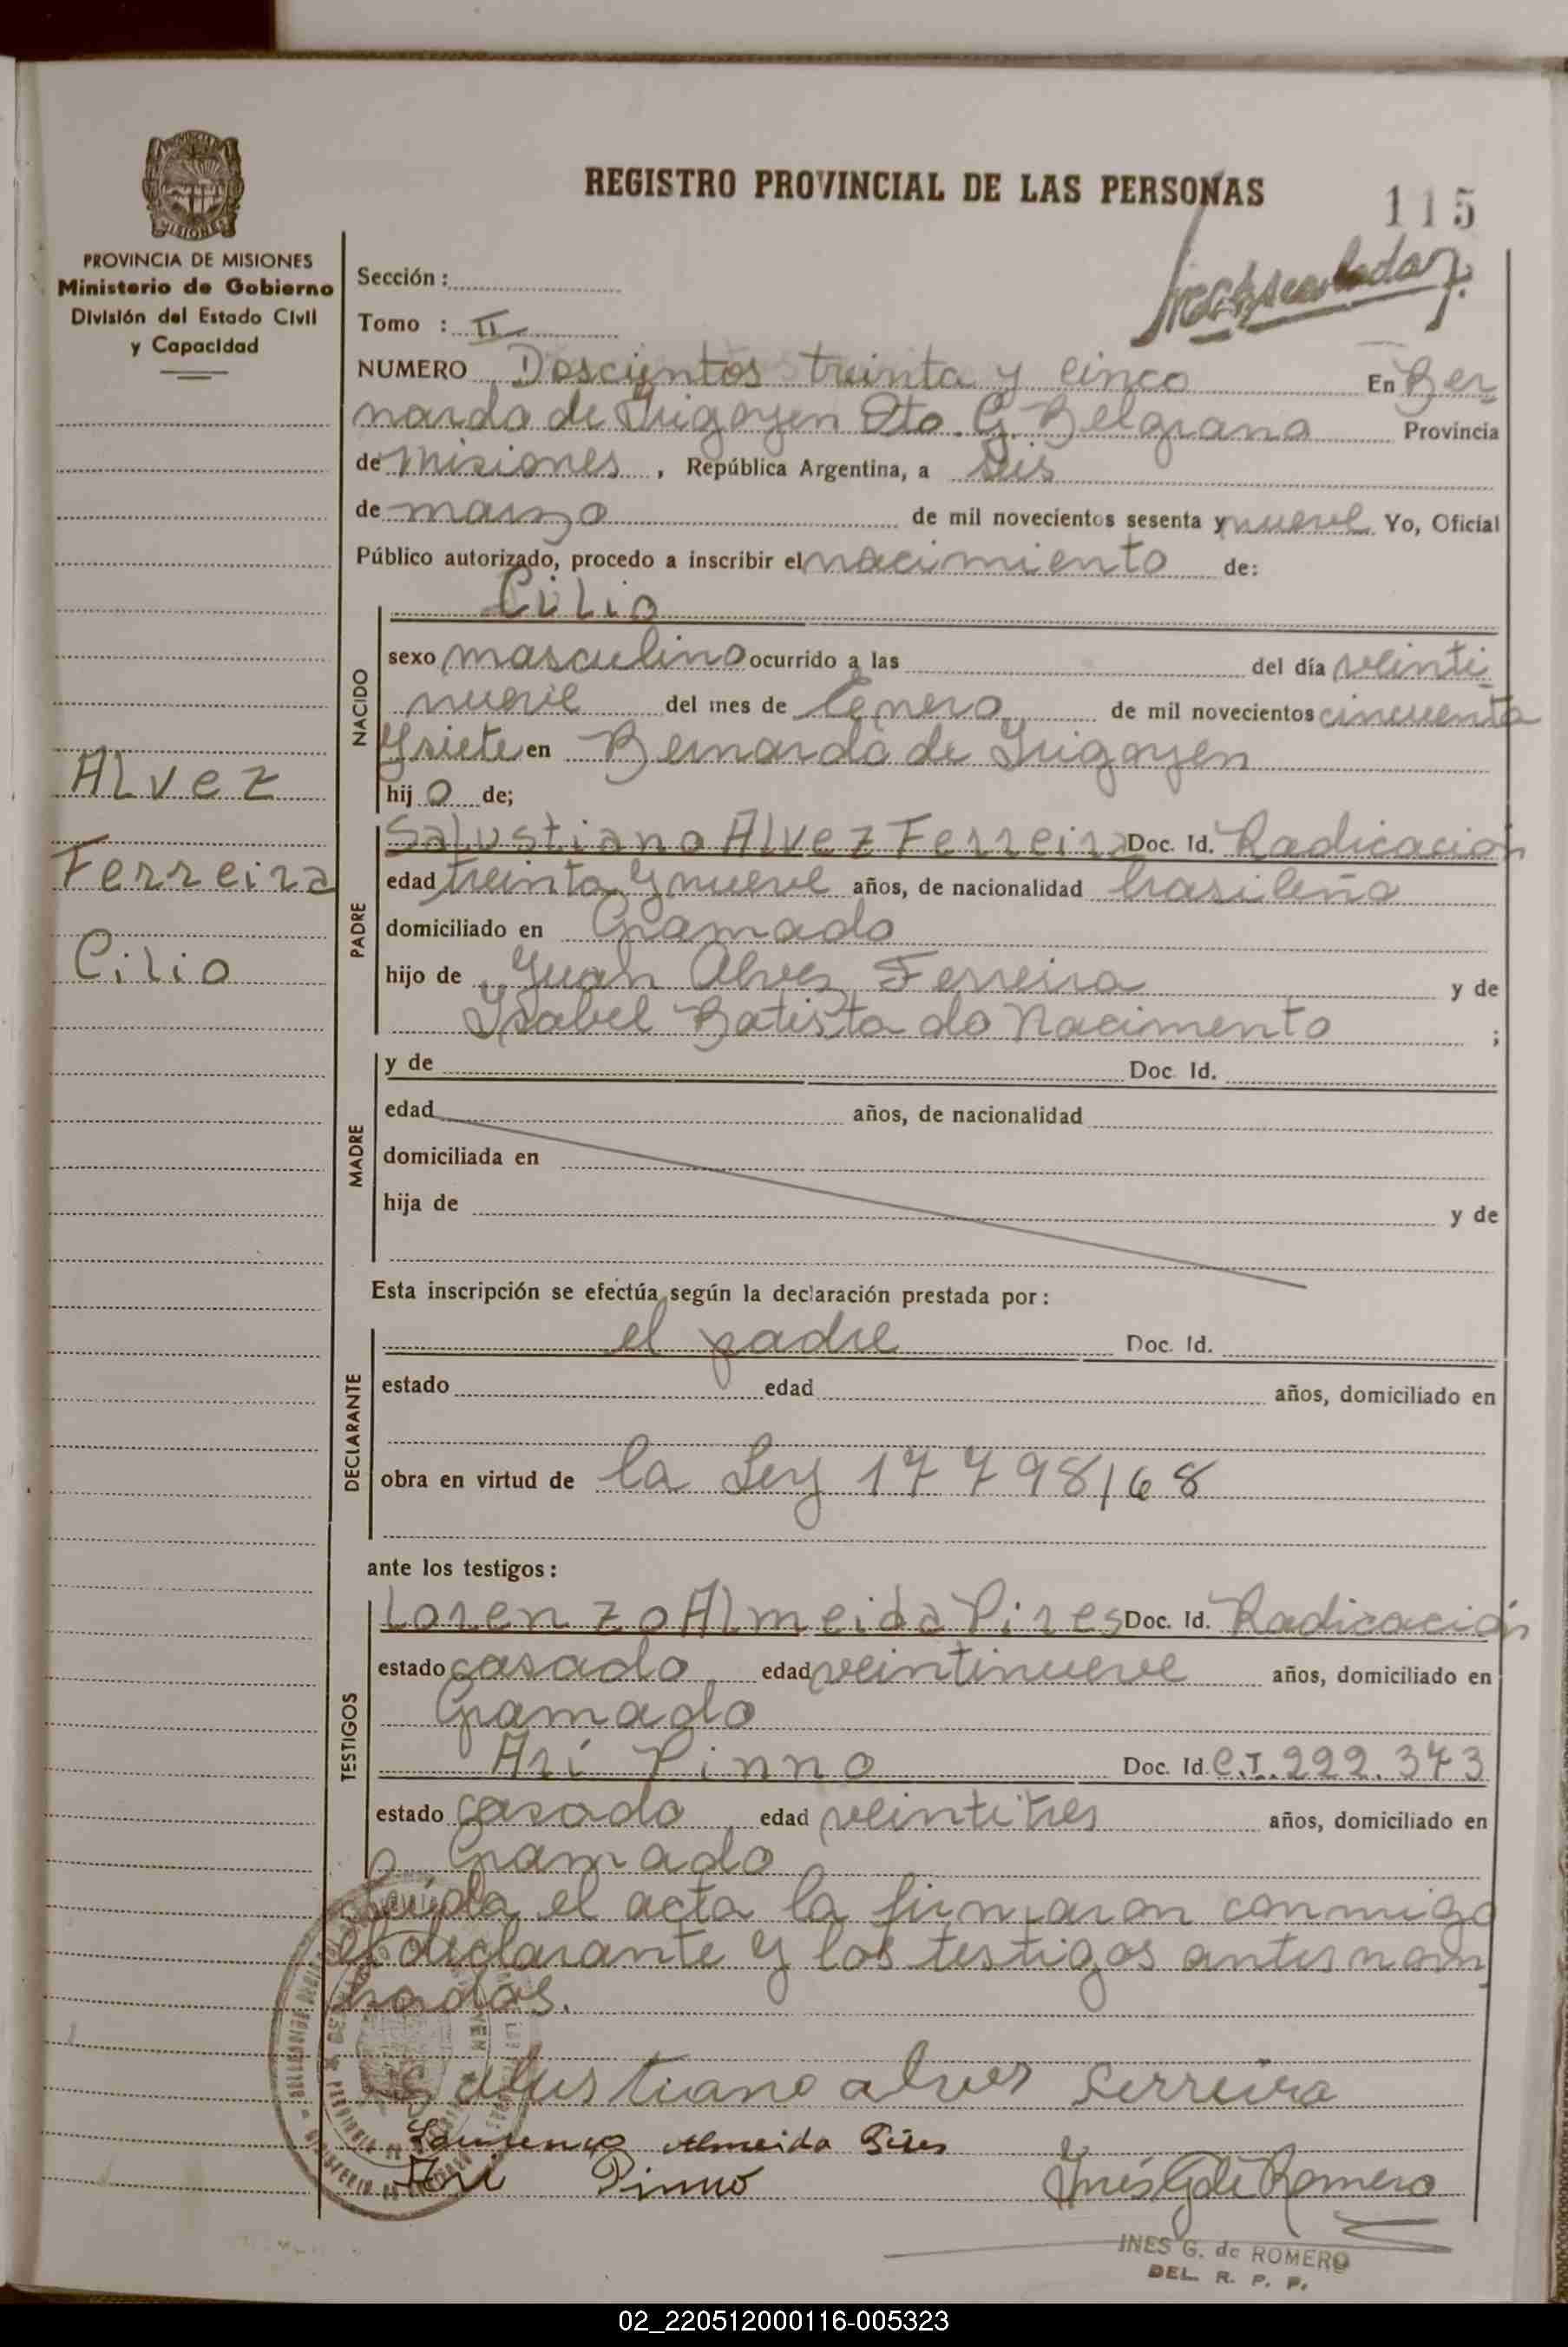 REGISTRO PROVINCIAL DE LAS PERSONAS
115
PROVINCIA DE MISIONES
Ministerio de Gobierno
División del Estado Civil
y Capacidad
Sección :
Tomo : II
NUMERO Doscientos treinta y cinco En Ber
nardo de Irigoyen Dto. G. Belgrano Provincia
de Misiones , República Argentina, a seis
de marzo de mil novecientos sesenta y nueve Yo, Oficial
Público autorizado, procedo a inscribir el nacimiento de:
Cilio
NACIDO
sexo masculino ocurrido a las del día veinti
nueve del mes de Enero de mil novecientos cincuenta
y siete en Bernardo de Irigoyen
hij o de;
Alvez
Ferreira
Cilio
PADRE
Salustiano Alvez Ferreira Doc. Id. Radicación
edad treinta y nueve años, de nacionalidad brasileño
domiciliado en Gramado
hijo de Juan Alves Ferreira y de
Isabel Batista do Nacimento ;
MADRE
y de Doc. Id.
edad años, de nacionalidad
domiciliada en
hija de y de
Esta inscripción se efectúa según la declaración prestada por :
DECLARANTE
el padre Doc. Id.
estado edad años, domiciliado en
obra en virtud de la Ley 17798/68
ante los testigos :
TESTIGOS
Lorenzo Almeida Pires Doc. Id. Radicación
estado casado edad veintinueve años, domiciliado en
Gramado
Arí Pinno Doc. Id. C.I. 222.373
estado casado edad veintitres años, domiciliado en
Gramado
Leída el acta la firmaron conmigo
el declarante y los testigos antes nom
brados.
Salustiano alves Ferreira
Almeida Pires
Ari Pinno
Inés G de Romero
INES G. de ROMERO
DEL. R. P. P.
02_220512000116-005323